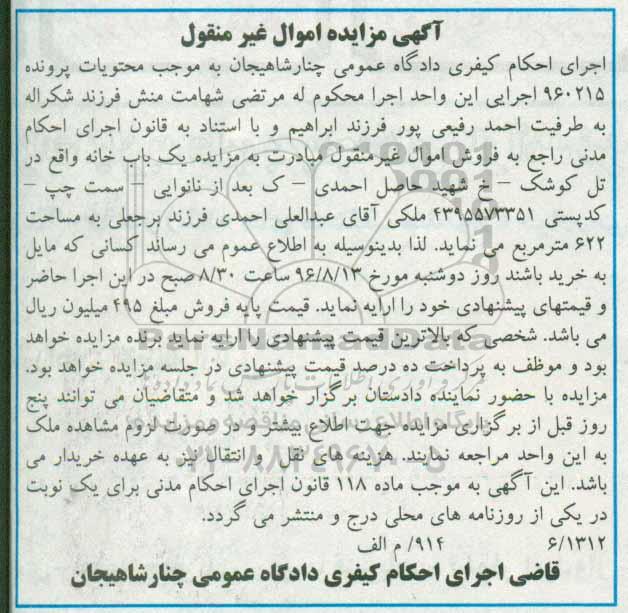 آگهی مزایده اموال غیر منقول
اجرای احکام کیفری دادگاه عمومی چنارشاهیجان به موجب محتویات پرونده
۹۶۰۲۱۵ اجرایی این واحد اجرا محکوم له مرتضی شهامت منش فرزند شکراله
به طرفیت احمد رفیعی پور فرزند ابراهیم و با استناد به قانون اجرای احکام
مدنی راجع به فروش اموال غیرمنقول مبادرت به مزایده یک باب خانه واقع در
تل کوشک – خ شهید حاصل احمدی – ک بعد از نانوایی – سمت چپ –
کدپستی ۴۳۹۵۵۷۳۳۵۱ ملکی آقای عبدالعلی احمدی فرزند برجعلی به مساحت
۶۲۲ مترمربع می نماید. لذا بدینوسیله به اطلاع عموم می رساند کسانی که مایل
به خرید باشند روز دوشنبه مورخ ۹۶/۸/۱۳ ساعت ۸/۳۰ صبح در این اجرا حاضر
و قیمتهای پیشنهادی خود را ارایه نماید. قیمت پایه فروش مبلغ ۴۹۵ میلیون ریال
می باشد. شخصی که بالاترین قیمت پیشنهادی را ارایه نماید برنده مزایده خواهد
بود و موظف به پرداخت ده درصد قیمت پیشنهادی در جلسه مزایده خواهد بود.
مزایده با حضور نماینده دادستان برگزار خواهد شد و متقاضیان می توانند پنج
روز قبل از برگزاری مزایده جهت اطلاع بیشتر و در صورت لزوم مشاهده ملک
به این واحد مراجعه نمایند. هزینه های نقل و انتقال نیز به عهده خریدار می
باشد. این آگهی به موجب ماده ۱۱۸ قانون اجرای احکام مدنی برای یک نوبت
در یکی از روزنامه های محلی درج و منتشر می گردد.
۶/۱۳۱۲ ۹۱۴/ م الف
قاضی اجرای احکام کیفری دادگاه عمومی چنارشاهیجان
ParsNamadData